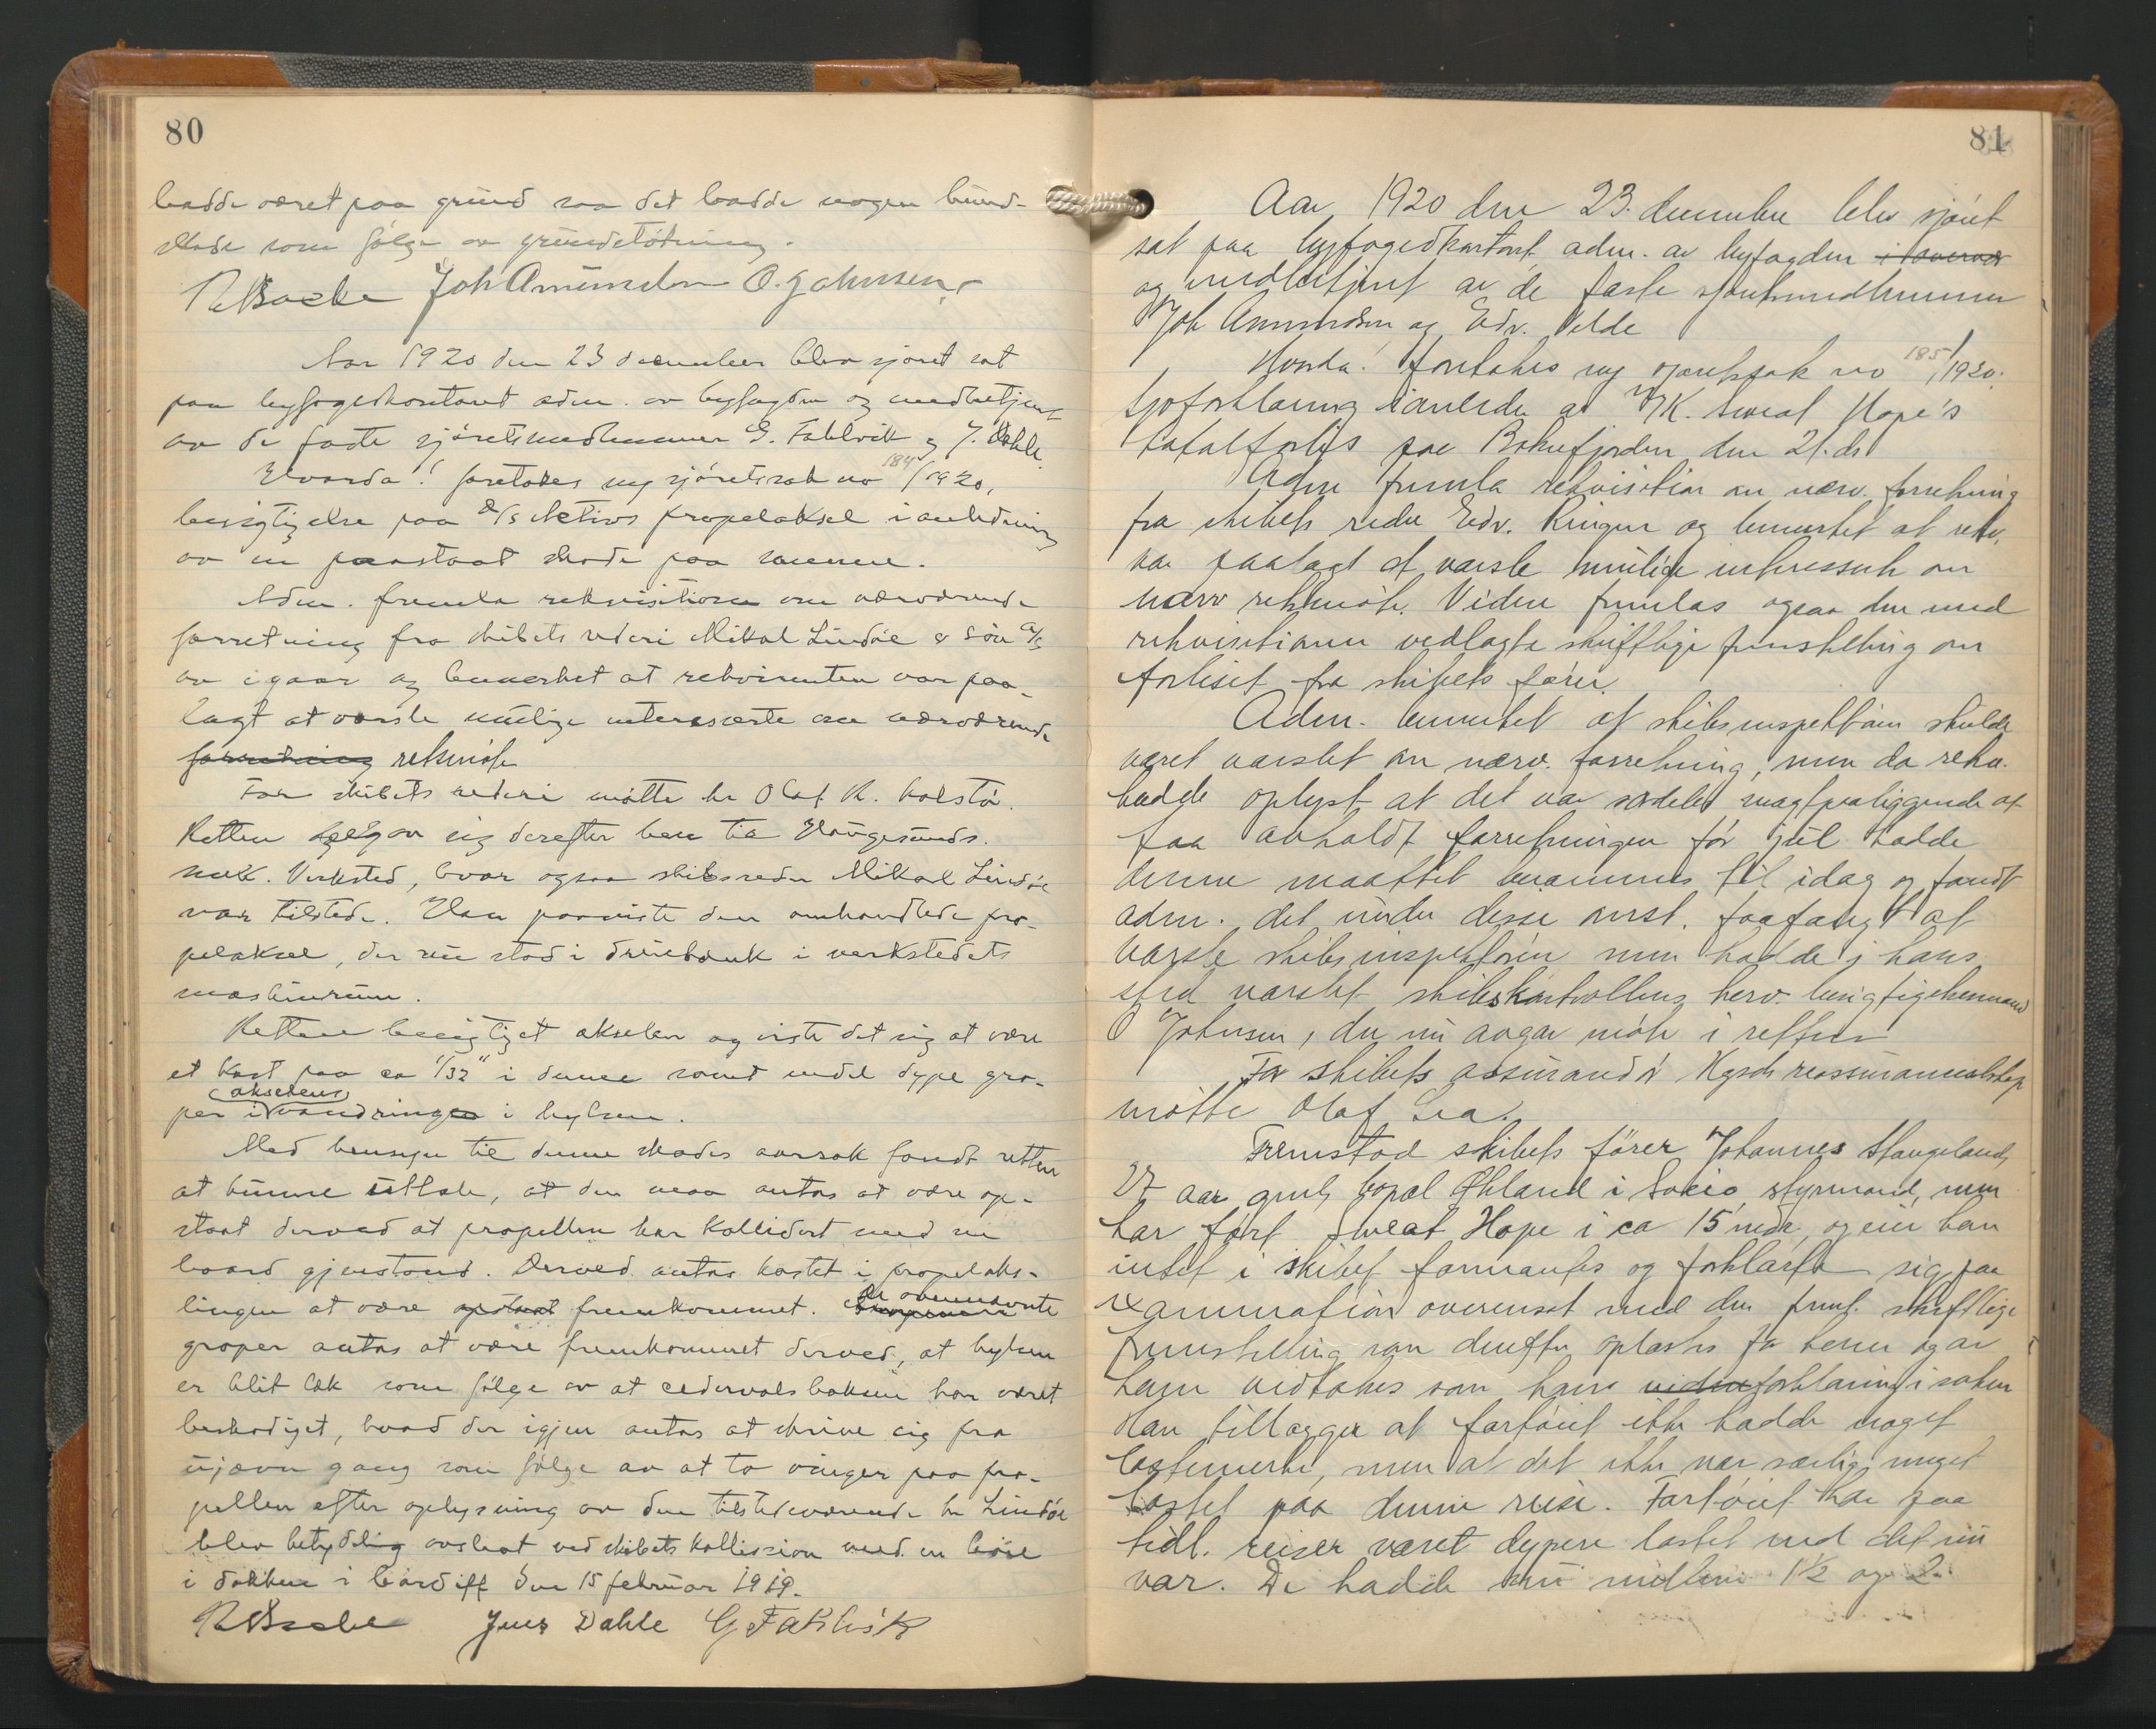 80
hadde været paa grund saa det hadde nogen bund-
skade som følge av grundstøtning.
Joh Amundsen O. Johnsen
Aar 1920 den 23 december blev sjøret sat
paa byfogedkontoret adm. av byfogden og medbetjent
av de faste sjøretsmedlemmer G. Fahlvik og J. Dahle.
Hvorda! foretokes ny sjøretssak no 184/1920,
besigtigelse paa D/S Aktivs propelaksel i anledning
av en paastaat skade paa samme.
Adm. fremla rekvisitionen om nærværende
forretning fra skibets rederi Mikal Lindøe & Søn A/S
av igaar og bemerket at rekvirenten var paa-
lagt at varsle mulige interesserte om nærværende
forretning retsmøte
For skibets rederi møtte hr Olaf K. Kolstø.
Retten begav sig derefter hen til Haugesunds
mek. Verksted, hvor ogsaa skibsreder Mikal Lindøe
var tilstede. Han paaviste den omhandlede pro-
pelaksel, der nu stod i dreiebænk i verkstedets
maskinrum.
Retten besigtiget akselen og viste det sig at være
et kast paa ca 1/32" i denne samt endel dype gro-
per i akselens vandringer i hylsen.
Med hensyn til denne skades aarsak fandt retten
at kunne uttale, at den maa antas at være op-
staat derved at propellen har kollidert med en
haard gjenstand. Derved antas kastet i propelaks-
lingen at være opstaat fremkommet. De ovennævnte
groper antas at være fremkommet derved, at hylsen
er blit læk som følge av at cedervalsboksen har været
beskadiget, hvad der igjen antas at skrive sig fra
ujævn gang som følge av at to vinger paa pro-
pellen efter oplysning av den tilstedeværende hr Lindøe
blev betydelig avslaat ved skibets kollission med en bøie
i dokken i Cardiff den 15 februar 1919.
Jens Dahle G Fahlvik
81
Aar 1920 den 23. december blev sjøret
sat paa byfogedkontoret adm. av byfogden
og medbetjent av de faste sjøretsmedlemmer
Joh Amundsen og Edv. Velde
Hvorda! foretokes ny sjøretssak no 185/1920.
Sjøforklaring i anledn av M/K. Sweat Hope's
totalforlis paa Boknefjorden den 21. ds
Adm fremla rekvisition om nærv. forretning
fra skibets reder Edv. Ringen og bemerket at rekv.
var paalagt at varsle mulige interesserte om
nærv retsmøte. Videre fremlas ogsaa den med
rekvisitionen vedlagte skriftlige fremstilling om
forliset fra skibets fører.
Adm. bemerket at skibsinspektøren skulde
været varslet om nærv. forretning, men da rekv.
hadde oplyst at det var særdeles magtpaaliggende at
faa avholdt forretningen før jul hadde
denne maattet berammes til idag og fandt
adm. det under disse omst. faafængt at
varsle skibsinspektøren men hadde i hans
sted varslet skibskontrollens herv. besigtigelsesmand
O Johnsen, der nu avgav møte i retten
For skibets assurandør Hgsds reassuranceselskap
møtte Olaf Lea.
Fremstod skibets fører Johannes Stangeland,
27 aar gml, bopæl Øhland i Sveio styrmand, men
har ført Sweat Hope i ca 15 mdr, og eier han
intet i skibet formanedes og forklarte sig paa
examination overenst med den freml. skriftlige
fremstilling som derefter oplæstes for ham og av
ham vedtokes som hans forklaring i saken
Han tillægger at fartøiet ikke hadde noget
lastemerke, men at det ikke var særlig meget
lastet paa denne reise. Fartøiet har paa
tidl. reiser været dypere lastet end det nu
var. De hadde nu mellem 1½ og 2